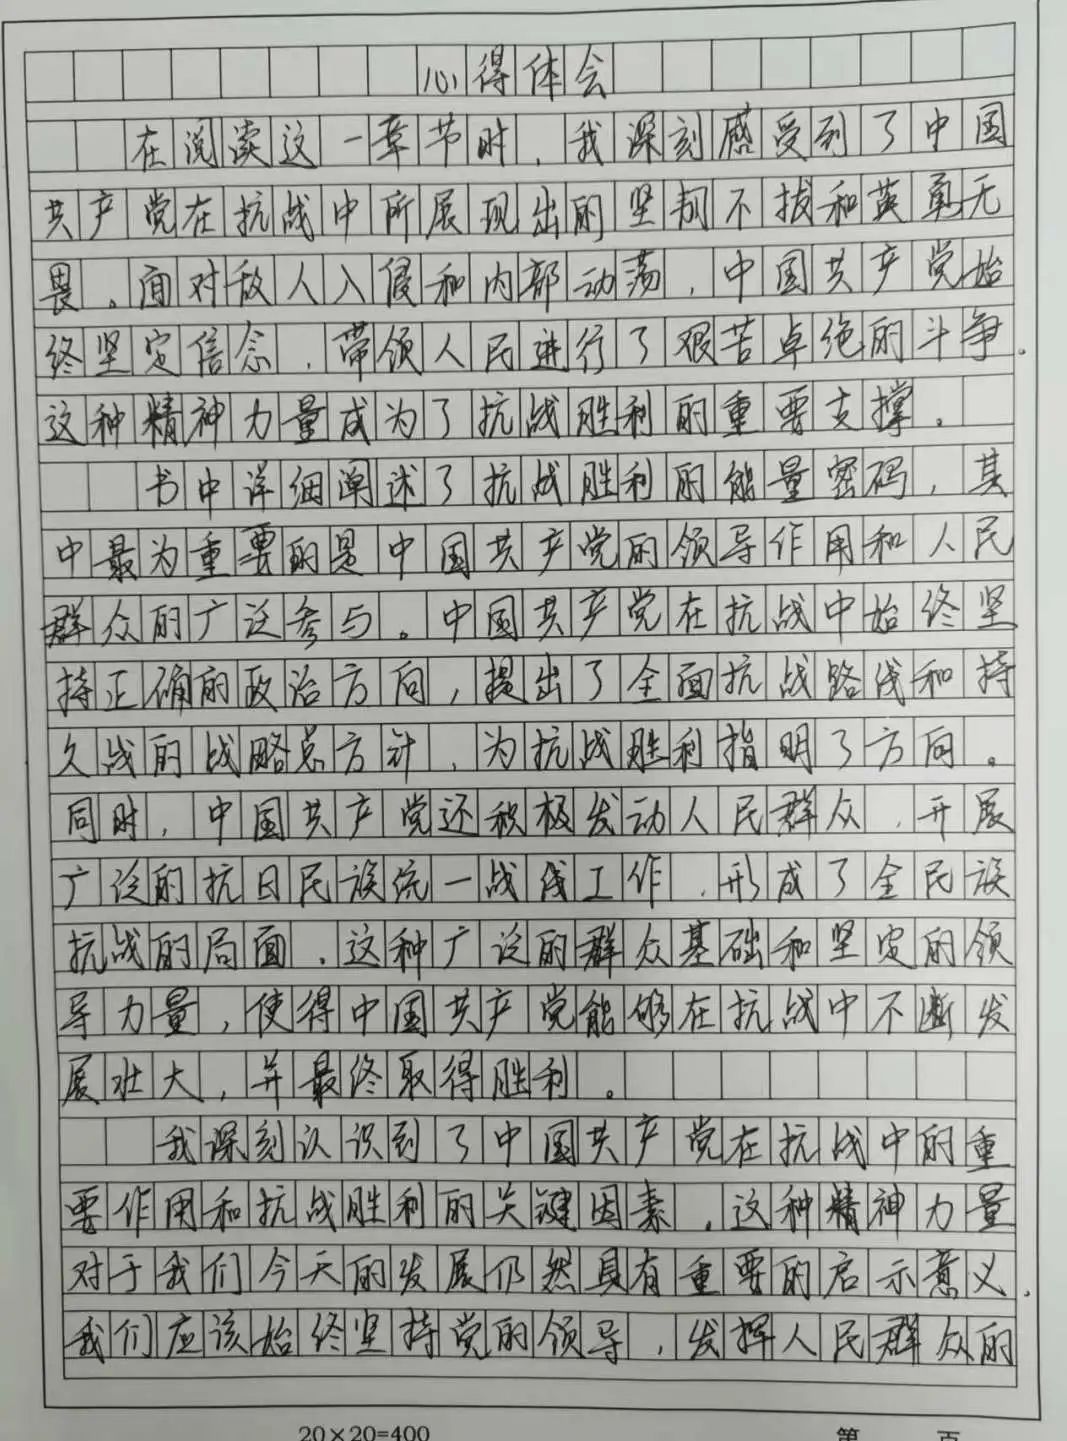 心得体会
在阅读这一章节时，我深刻感受到了中国
共产党在抗战中所展现出的坚韧不拔和英勇无
畏。面对敌人入侵和内部动荡，中国共产党始
终坚定信念，带领人民进行了艰苦卓绝的斗争。
这种精神力量成为了抗战胜利的重要支撑。
书中详细阐述了抗战胜利的能量密码，其
中最为重要的是中国共产党的领导作用和人民
群众的广泛参与。中国共产党在抗战中始终坚
持正确的政治方向，提出了全面抗战路线和持
久战的战略总方针，为抗战胜利指明了方向。
同时，中国共产党还积极发动人民群众，开展
广泛的抗日民族统一战线工作，形成了全民族
抗战的局面。这种广泛的群众基础和坚定的领
导力量，使得中国共产党能够在抗战中不断发
展壮大，并最终取得胜利。
我深刻认识到了中国共产党在抗战中的重
要作用和抗战胜利的关键因素。这种精神力量
对于我们今天的发展仍然具有重要的启示意义。
我们应该始终坚持党的领导，发挥人民群众的
20×20=400 第 页